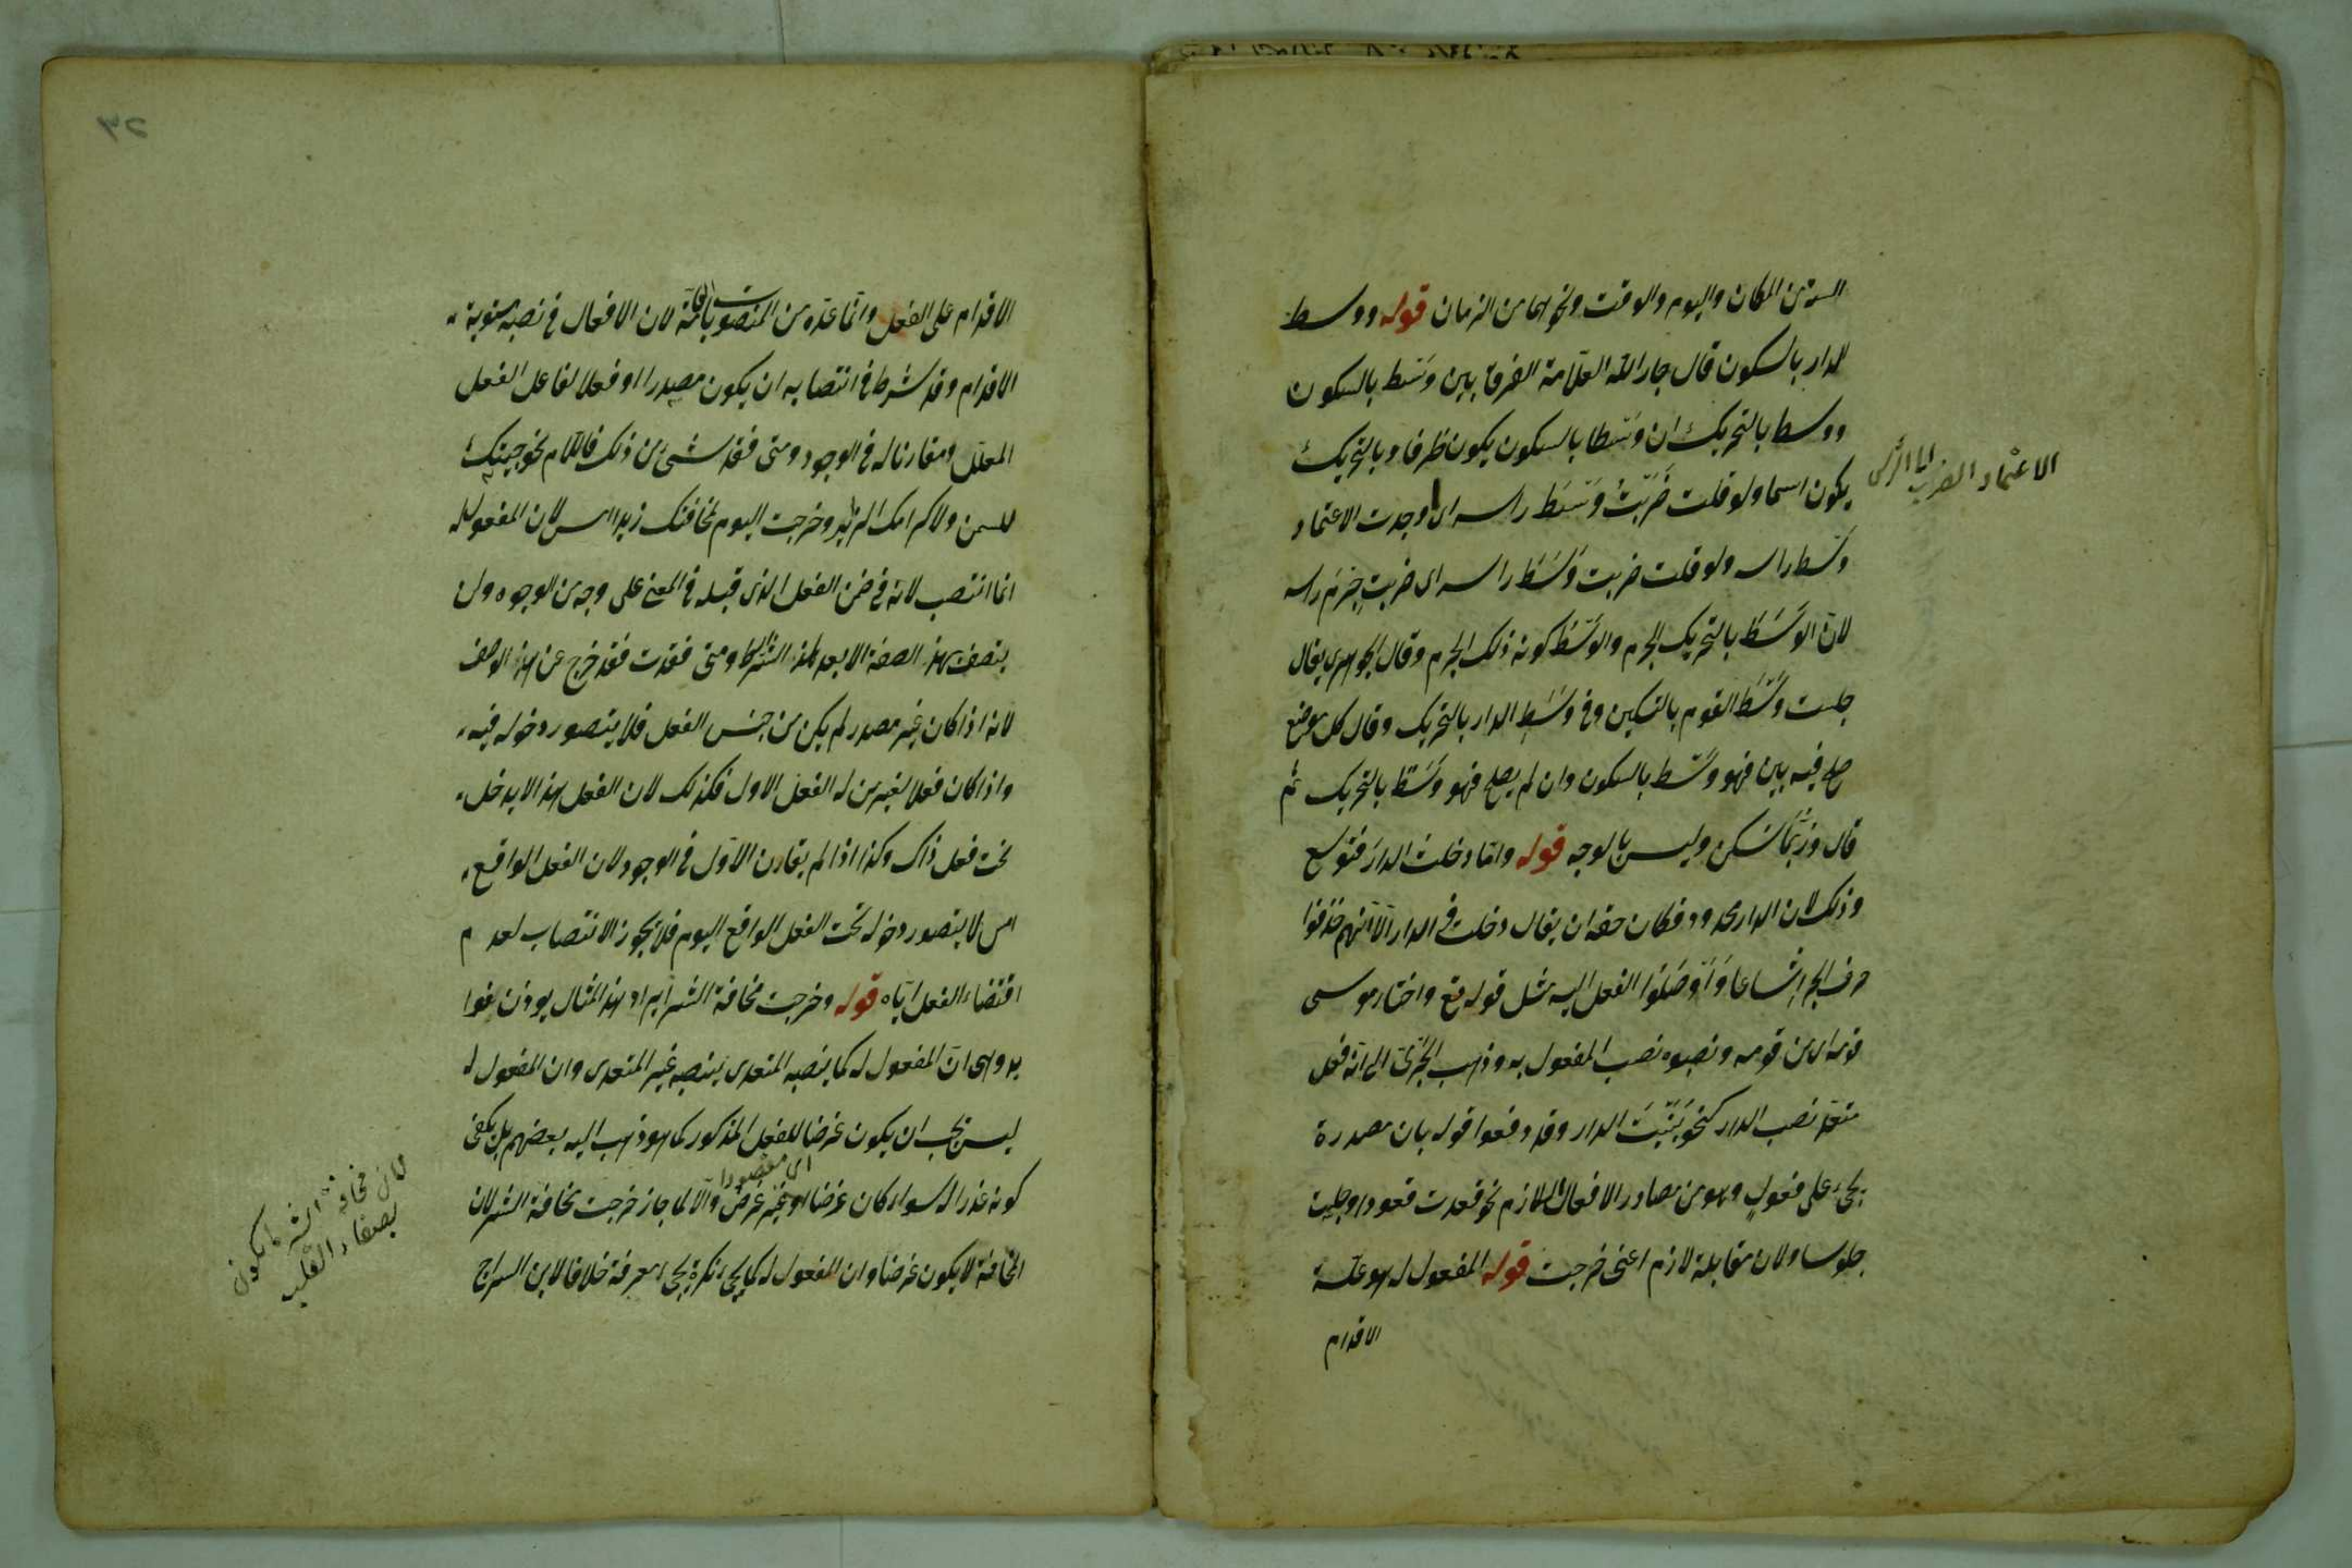 الستة من المكان واليوم والوقت ونحوها من الزمان قوله ووسط
الدار بالسكون قال جار الله العلّامة الفرق بين وسْط بالسكون
ووسط بالتحريك ان وسْطا بالسكون يكون ظرفا وبالتحريك
يكون اسما ولو قلت ضَرَبْتُ وَسْط راسه اى اوجدت الاعتماد
وسْط راسه ولو قلت ضربت وَسَطَ راسه اى ضربت جِرْمَ راسه
لانّ الوَسَط بالتحريك الجرم والوسْط كونه ذلك الجرم وقال الجوهرى يقال
جلست وسْط القوم بالتسكين وفى وسَطِ الدار بالتحريك وقال كل موضع
صلح فيه بين فهو وسْط بالسكون وان لم يصلح فهو وسَط بالتحريك ثم
قال ورُبّما سُكن وليس بالوجه قوله وامّا دخلت الدارَ فتوسع
وذلك لان الدار محدود فكان حقه ان يقال دخلت فى الدار الّا انّهم حذفوا
حرف الجر اتساعا وَاَوْصَلوا الفعل اليه مثل قوله تع واختار موسى
قومه اى من قومه ونصبوه نصب المفعول به وذهب الجَرْمىّ الى انّه فعل
متعدّ نصب الدار كنحو بَنَيْتَ الدار وقد دفعوا قوله بان مصدره
يجىء على فعولٍ وهو من مصادر الافعال اللازم نحو قعدت قعودا وجلست
جلوسا ولان مقابله لازم اعنى خرجت قوله المفعول له هو علّة
الاقدام
الاعتماد الضرب
الاقدام على الفعل وانّما عدّه من المنصوبات العامّة لان الافعال فى نصبه مستوية
الاقدام وقد شرط فى انتصابه ان يكون مصدرا او فعلا لفاعل الفعل
المعلّل ومقارنا له فى الوجود ومتى فقد شىء من ذلك فاللام نحو جيتك
للسمن ولاكرامك الزيد وخرجت اليوم لمخافتك زيدا امس لان المفعول له
انما انتصب لانه فى ضمن الفعل الذى قبله فى المعنى على وجه من الوجوه ولن
يتصف بهذه الصفة الا بعد هذه الشرايط ومتى فقدت فقد خرج عن هذا الوصف
لانه اذا كان غير مصدر لم يكن من جنس الفعل فلا يتصور دخوله فيه
واذا كان فعلا لغير من له الفعل الاول فكذلك لان الفعل هذا لا يدخل
تحت فعل ذاك وكذا اذا لم يقارن الاوّل فى الوجود لان الفعل الواقع
امس لا يتصور دخوله تحت الفعل الواقع اليوم فلا يجوز الانتصاب لعدم
اقتضاء الفعل ايّاه قوله وخرجت مخافة الشر ايراد هذا المثال يوذن
وهى انّ المفعول له كما ينصبه المتعدى ينصبه غير المتعدى وان المفعول له
ليس يجب ان يكون غرضا للفعل المذكور كما هو ذهب اليه بعضهم بل يكفى
اى مقصودا
كونه عذرا له سواء كان غرضا او غير غرض والّا لما جاز خرجت مخافة الشر لان
المخافة لا يكون غرضا وان المفعول له كما يجىء نكرة يجىء معرفة خلافا لابن السراج
لان مخافة الشر